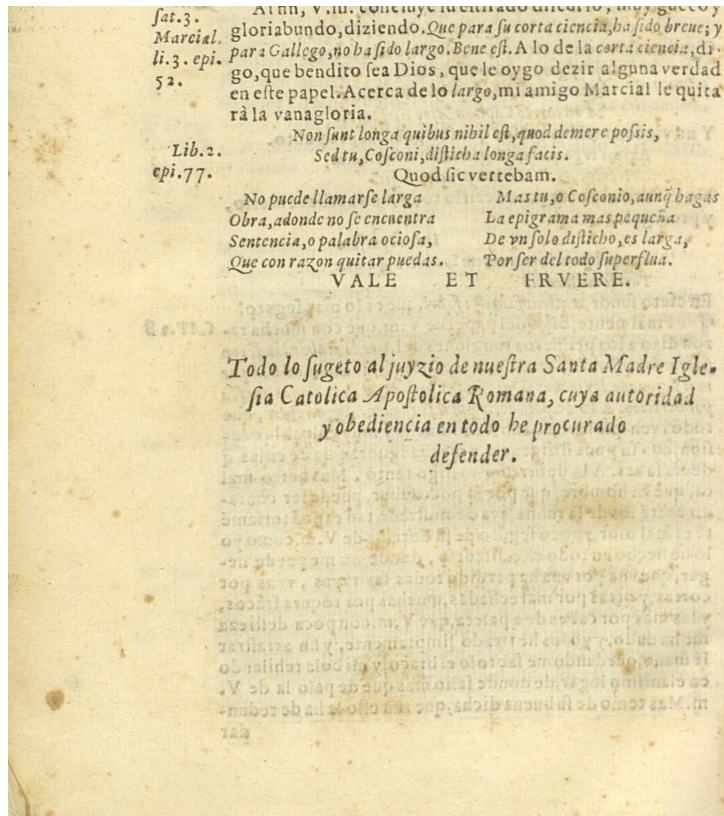 sat.3.
Marcial.
li.3. epi.
52.
Al fin, V.m. concluye su enfriado discurso, muy gueco y
gloriabundo, diziendo. Que para su corta ciencia, ha sido breue; y
para Gallego, no ha sido largo. Bene est. A lo de la corta ciencia, di-
go, que bendito sea Dios, que le oygo dezir alguna verdad
en este papel. Acerca de lo largo, mi amigo Marcial le quita
rà la vanagloria.
Lib.2.
epi.77.
Non sunt longa quibus nihil est, quod demere possis,
Sed tu, Cosconi, disticha longa facis.
Quod sic vertebam.
No puede llamarse larga
Obra, adonde no se encuentra
Sentencia, o palabra ociosa,
Que con razon quitar puedas.
Mas tu, o Cosconio, aunq̃ hagas
La epigrama mas pequeña
De vn solo disticho, es larga,
Por ser del todo superflua.
VALE ET FRVERE.
Todo lo sugeto al juyzio de nuestra Santa Madre Igle-
sia Catolica Apostolica Romana, cuya autoridad
y obediencia en todo he procurado
defender.